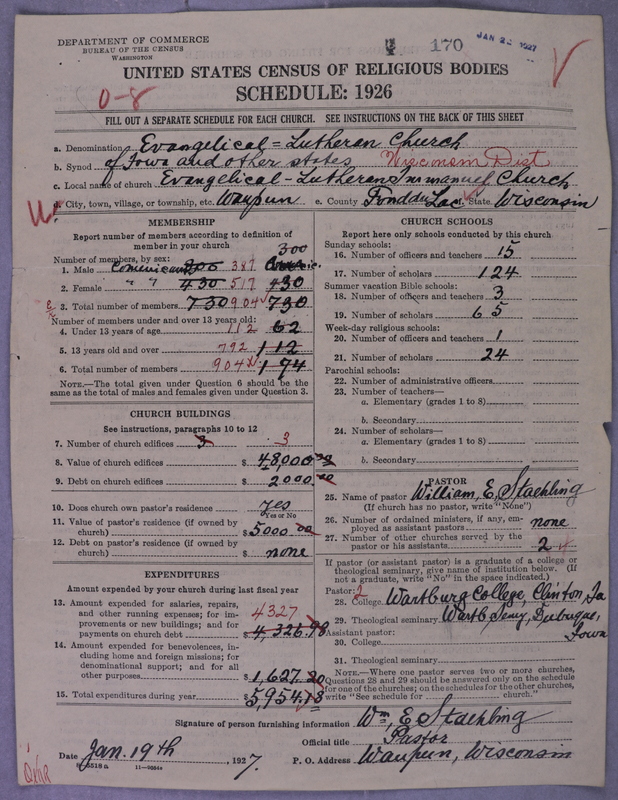 DEPARTMENT OF COMMERCE
BUREAU OF THE CENSUS
WASHINGTON
170
JAN 2 1927
UNITED STATES CENSUS OF RELIGIOUS BODIES
SCHEDULE: 1926
0-8
FILL OUT A SEPARATE SCHEDULE FOR EACH CHURCH. SEE INSTRUCTIONS ON THE BACK OF THIS SHEET
a. Denomination Evangelical=Lutheran Church
b. Synod of Iowa and other states Wisconsin Dist
c. Local name of church Evangelical-Lutheran Immanuel Church
d. City, town, village, or township, etc. Waupun e. County Fond du Lac State Wisconsin
MEMBERSHIP
Report number of members according to definition of
member in your church
Number of members, by sex: 300
1. Male 387
2. Female " " 430 517 430
3. Total number of members 730 904 730
Number of members under and over 13 years old:
4. Under 13 years of age 112 62
5. 13 years old and over 792 112
6. Total number of members 904 174
NOTE.—The total given under Question 6 should be the
same as the total of males and females given under Question 3.
CHURCH BUILDINGS
See instructions, paragraphs 10 to 12
7. Number of church edifices 3 3
8. Value of church edifices $ 48,000
9. Debt on church edifices $ 2000.00
10. Does church own pastor's residence yes
Yes or No
11. Value of pastor's residence (if owned by
church) $ 5000.00
12. Debt on pastor's residence (if owned by
church) $ none
EXPENDITURES
Amount expended by church during last fiscal year
13. Amount expended for salaries, repairs,
and other running expenses; for im-
provements or new buildings; and for
payments on church debt $ 4327 4,326.98
14. Amount expended for benevolences, in-
cluding home and foreign missions; for
denominational support; and for all
other purposes $ 1,627.20
15. Total expenditures during year $ 5,954.18
CHURCH SCHOOLS
Report here only schools conducted by this church
Sunday schools:
16. Number of officers and teachers 15
17. Number of scholars 124
Summer vacation Bible schools:
18. Number of officers and teachers 3
19. Number of scholars 65
Week-day religious schools:
20. Number of officers and teachers 1
21. Number of scholars 24
Parochial schools:
22. Number of administrative officers
23. Number of teachers—
a. Elementary (grades 1 to 8)
b. Secondary
24. Number of scholars—
a. Elementary (grades 1 to 8)
b. Secondary
PASTOR
25. Name of pastor William, E, Staehling
(If church has no pastor, write "None")
26. Number of ordained ministers, if any, em-
ployed as assistant pastors none
27. Number of other churches served by the
pastor or his assistants 2
If pastor (or assistant pastor) is a graduate of a college or
theological seminary, give name of institution below. (If
not a graduate, write "No" in the space indicated.)
Pastor: 2
28. College Wartburg College, Clinton, Ia
29. Theological seminary Wartb Semy, Dubuque,
Iowa
Assistant pastor:
30. College
31. Theological seminary
NOTE.—Where one pastor serves two or more churches,
Questions 28 and 29 should be answered only on the schedule
for one of the churches; on the schedules for the other churches,
write "See schedule for church."
Signature of person furnishing information Wm, E Staehling
Official title Pastor
Date Jan. 19th, 1927. P. O. Address Waupun, Wisconsin
11—9884